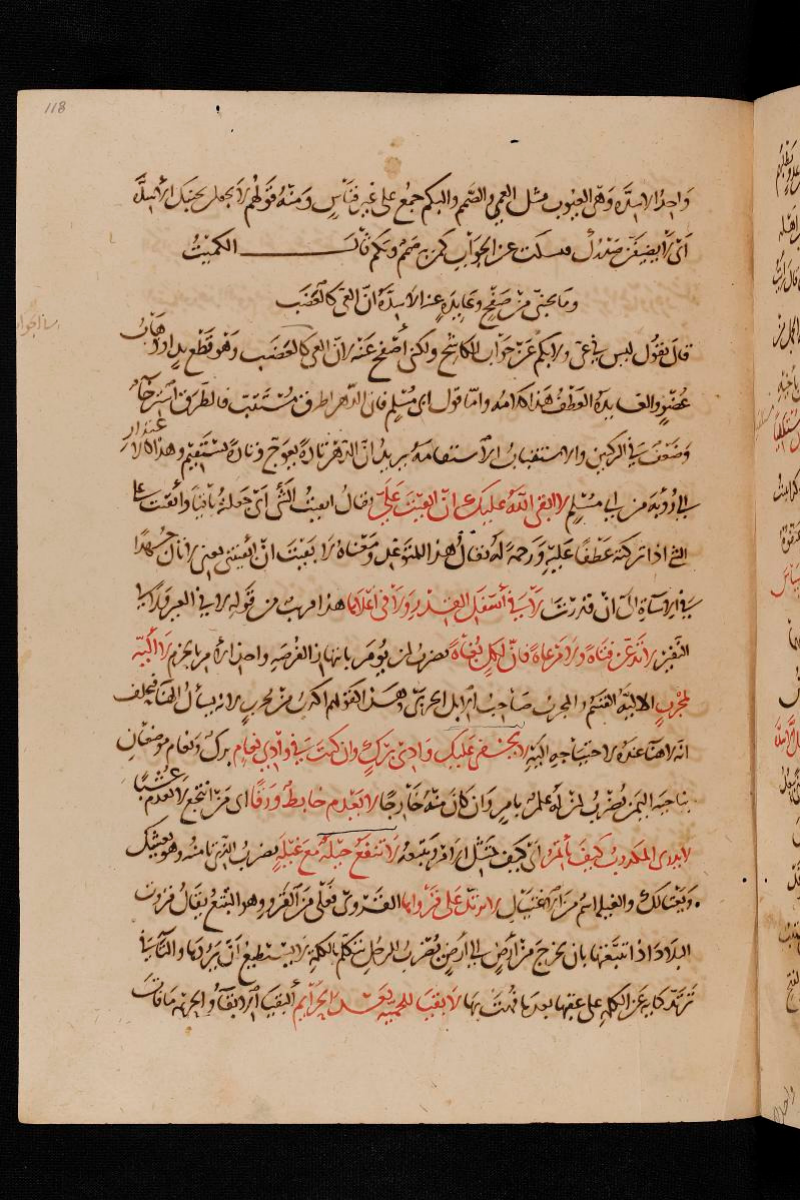 118
واحد الاسدّة وهى العيوب مثل العمى والصّمم والبكم جمع على غير قياس ومنه قولهم لا تجعلن بجنبك الاسدّة
اى لا يضيقن صدرك فتسكت عن الجواب كمن به صمم وبكم قال الكميت
وما بجنبى من صفح وعايدة عند الاسدّة انّ العى كالعضب
قال يقول ليس بى عى ولا بكم عن جواب الكاشح ولكنى أصفح عنه لانّ العى كالعضب وهو قطع يد او ذهاب
عضو والعايدة العطف هذا كلامه وامّا قول ابى مسلم فان الدهر اطرق مستتب فالطرق استرخاء
وضعف فى الركبتين والاستتباب الاستقامة يريد انّ الدهر تارة يعوج وتارة يستقيم وهذا الاعتذار
الى رؤبة من ابى مسلم لا ابقى الله عليك ان ابقيت علىّ يقال ابقيت الشىء اى جعلته باقيا وابقيت على
الشىء اذا تركته عطفا عليه ورحمة له يقال هذا للتوعد ومعناه لا بقيت ان ابقيتنى يعنى لا تال جهدا
فى الاساءة الىّ ان قدرت لا فى أسفل القدر ولا فى اعلاها هذا قريب من قولهم لا فى العير ولا فى
النفير لا تدعن فتاة ولا مرعاة فانّ لكل بغاة يضرب لمن يؤمر بانتهاز الفرصة واخذ الامر بالحزم لا أليّة
لمجرب الاليّة القسم والمجرب صاحب الابل الجربى وهذا كقولهم اكذب من مجرب لانه يسأل الهناء فيحلف
انه لا هناء عنده لاحتياجه اليه لا يخفى عليك وادى برك وان كنت فى وادى نعام برك ونعام موضعان
بناحية اليمن يضرب لمن له علم بامر وان كان منه خارجا لا يعدم خابط ورقا اى من انتجع لا يعدم عشبا
لا يدرى المكذوب كيف يأتمر اى كيف يمتثل الامر ويتبعه لا تنفع حيلة مع غيلة يضرب للذى تأمنه وهو يغشك
ويغتالك والغيلة اسم من الاغتيال
البلاد اذا تتبعتها بان تخرج من أرض الى ارض يضرب للرجل يتكلم بالكلمة لا يستطيع أن يردّها
لا بقيا للحمية بعد الحرايم البقيا الابقاء والحرمة ما فات